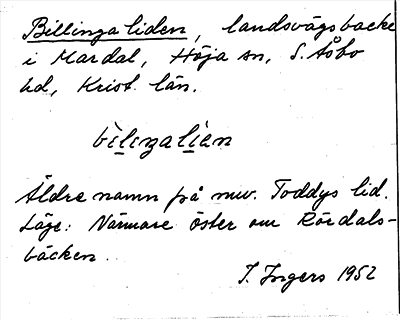 Billingaliden, landsvägsbacke
i Mardal, Höja sn, S. Åsbo
hd, Krist. län.
bìliŋalían
Äldre namn på nuv. Toddys lid.
Läge: Närmare öster om Rördals-
bäcken.
I. Ingers 1952